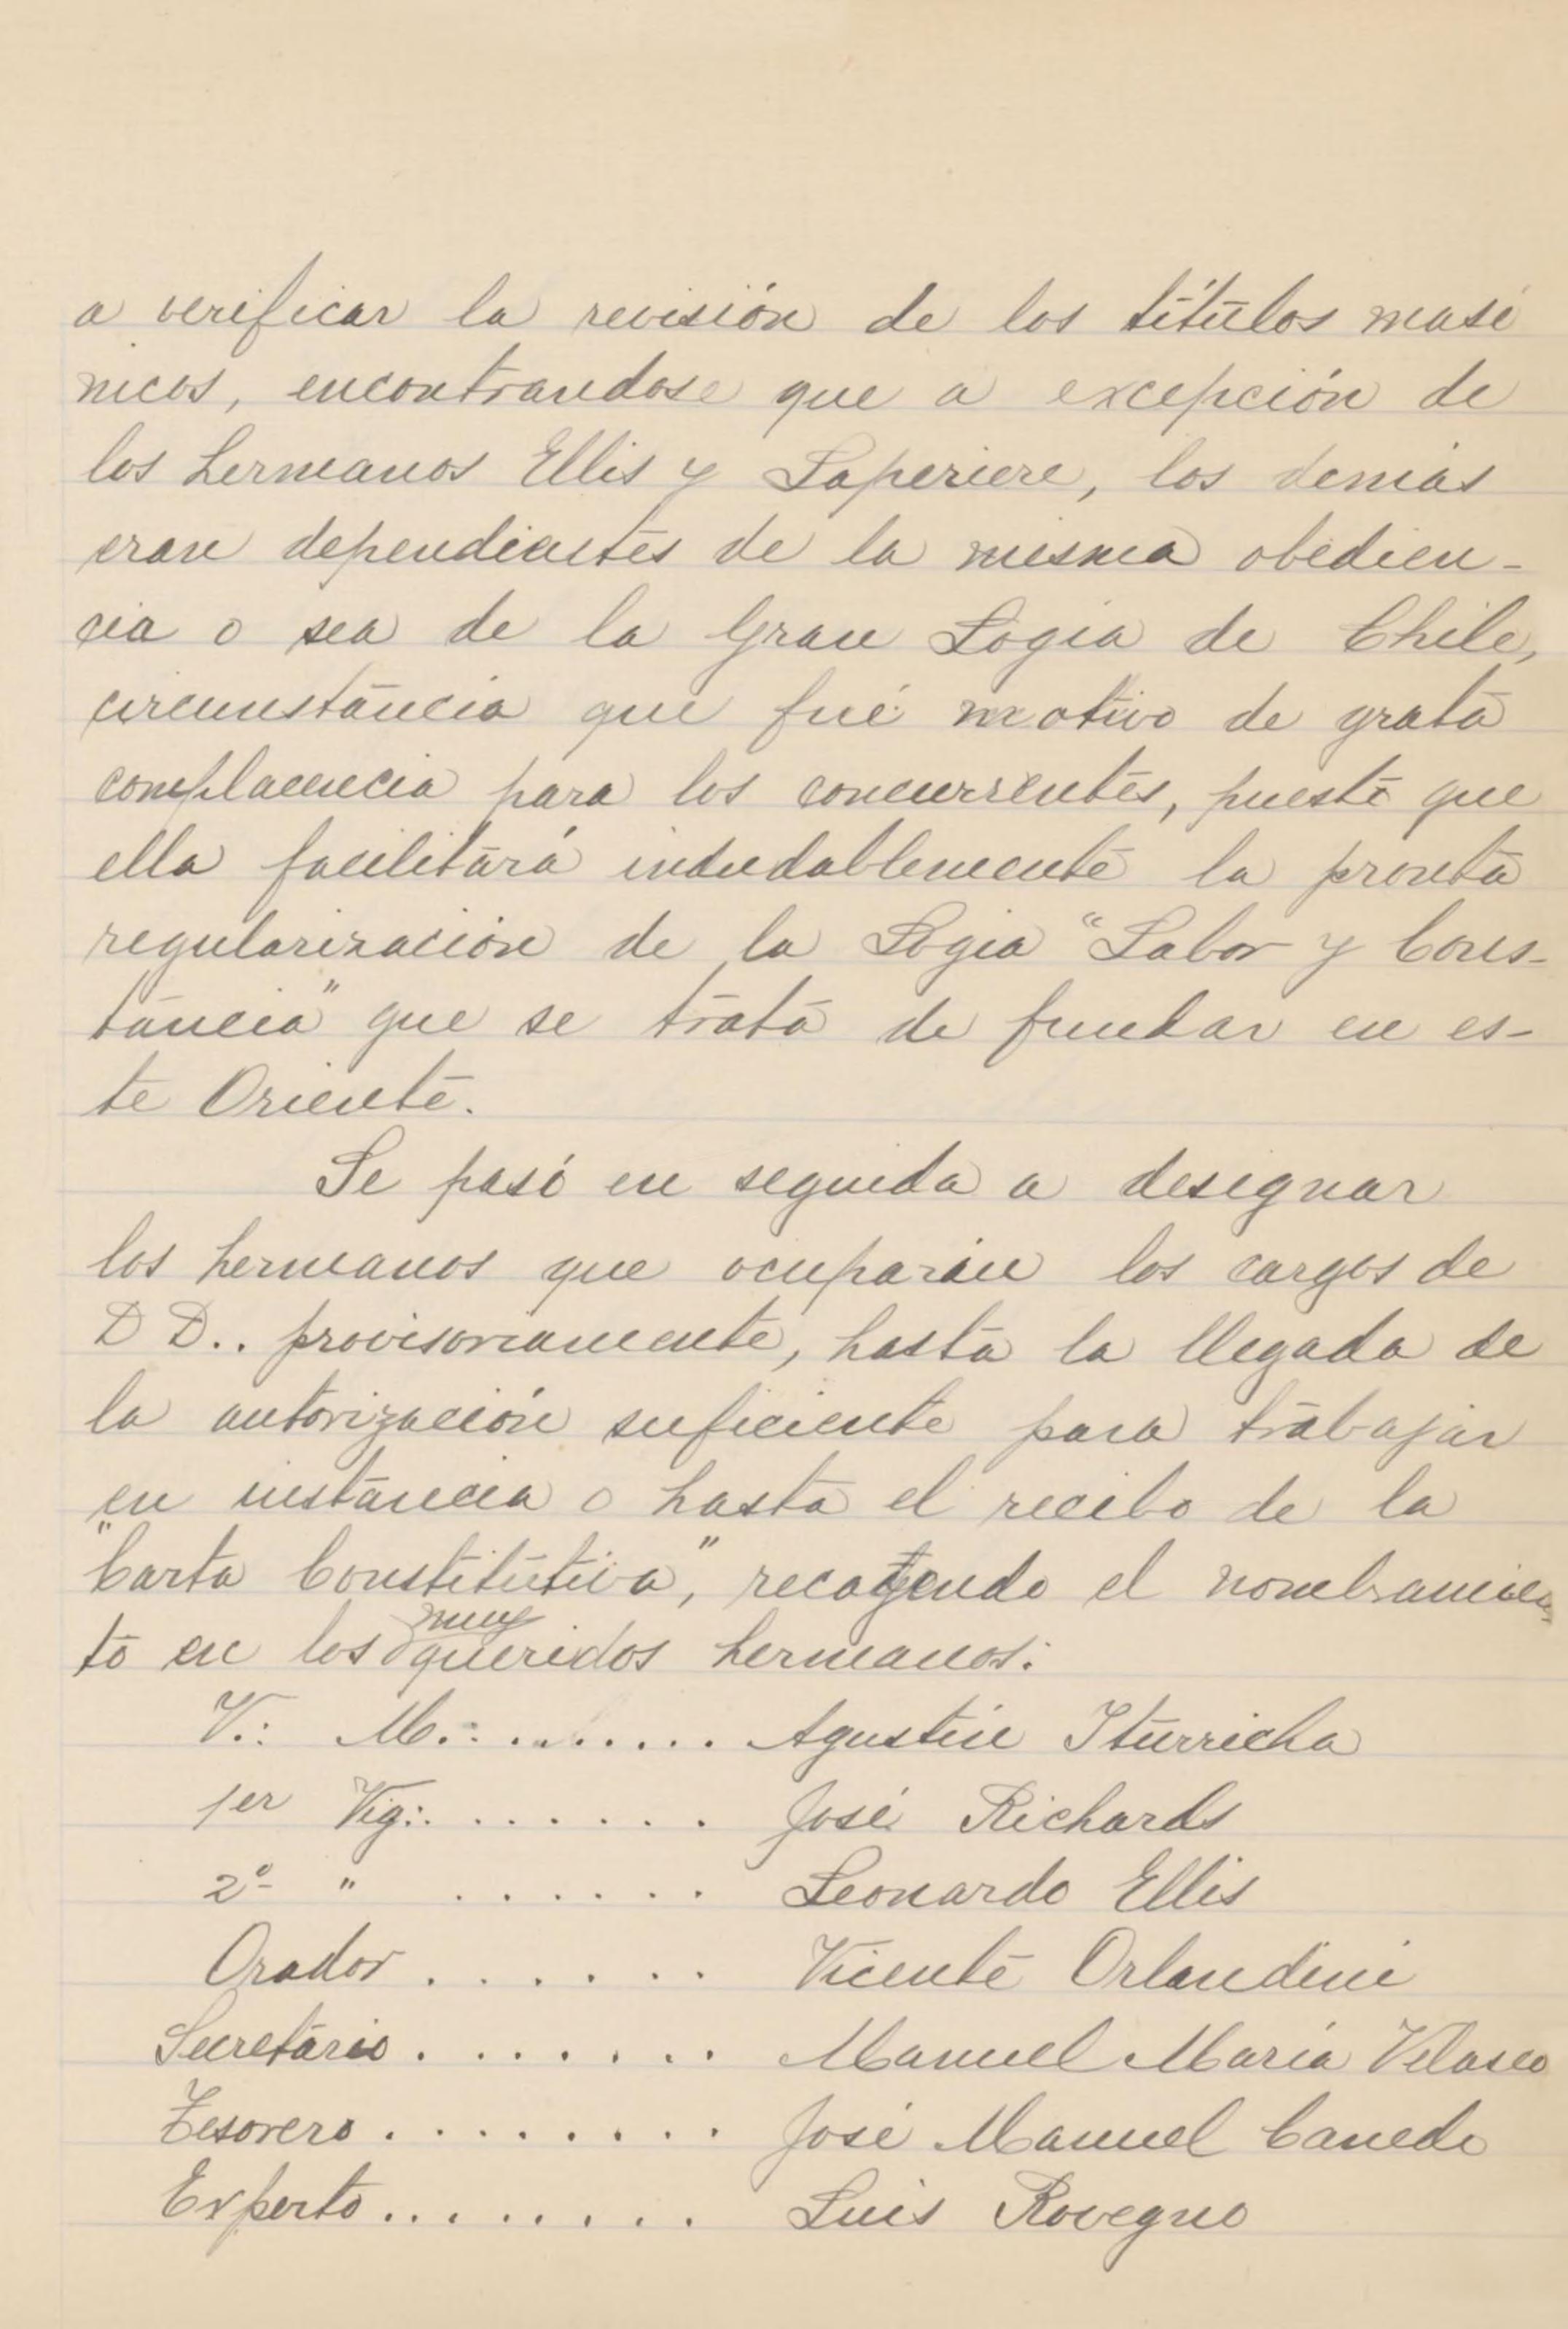 a verificar la revisión de los títulos masó
nicos, encontrandose que a excepción de
los hermanos Ellis y Laperiere, los demás
eran dependientes de la misma obedien-
cia o sea de la Gran Logia de Chile,
circunstancia que fué motivo de grata
complacencia para los concurrentes, puesto que
ella facilitará indudablemente la pronta
regularización de la Logia "Labor y Cons-
tancia" que se trata de fundar en es-
te Oriente.
Se pasó en seguida a designar
los hermanos que ocuparán los cargos de
D D.. provisoriamente, hasta la llegada de
la autorización suficiente para trabajar
en instancia o hasta el recibo de la
"Carta Constitutiva", recayendo el nombramien
to en los muy queridos hermanos:
V.: M.: ........ Agustín Iturricha
1er Vig:. ...... José Richards
2º " ...... Leonardo Ellis
Orador ...... Vicente Orlandini
Secretario ....... Manuel María Velasco
Tesorero ......... José Manuel Canedo
Experto ........ Luis Rovegno